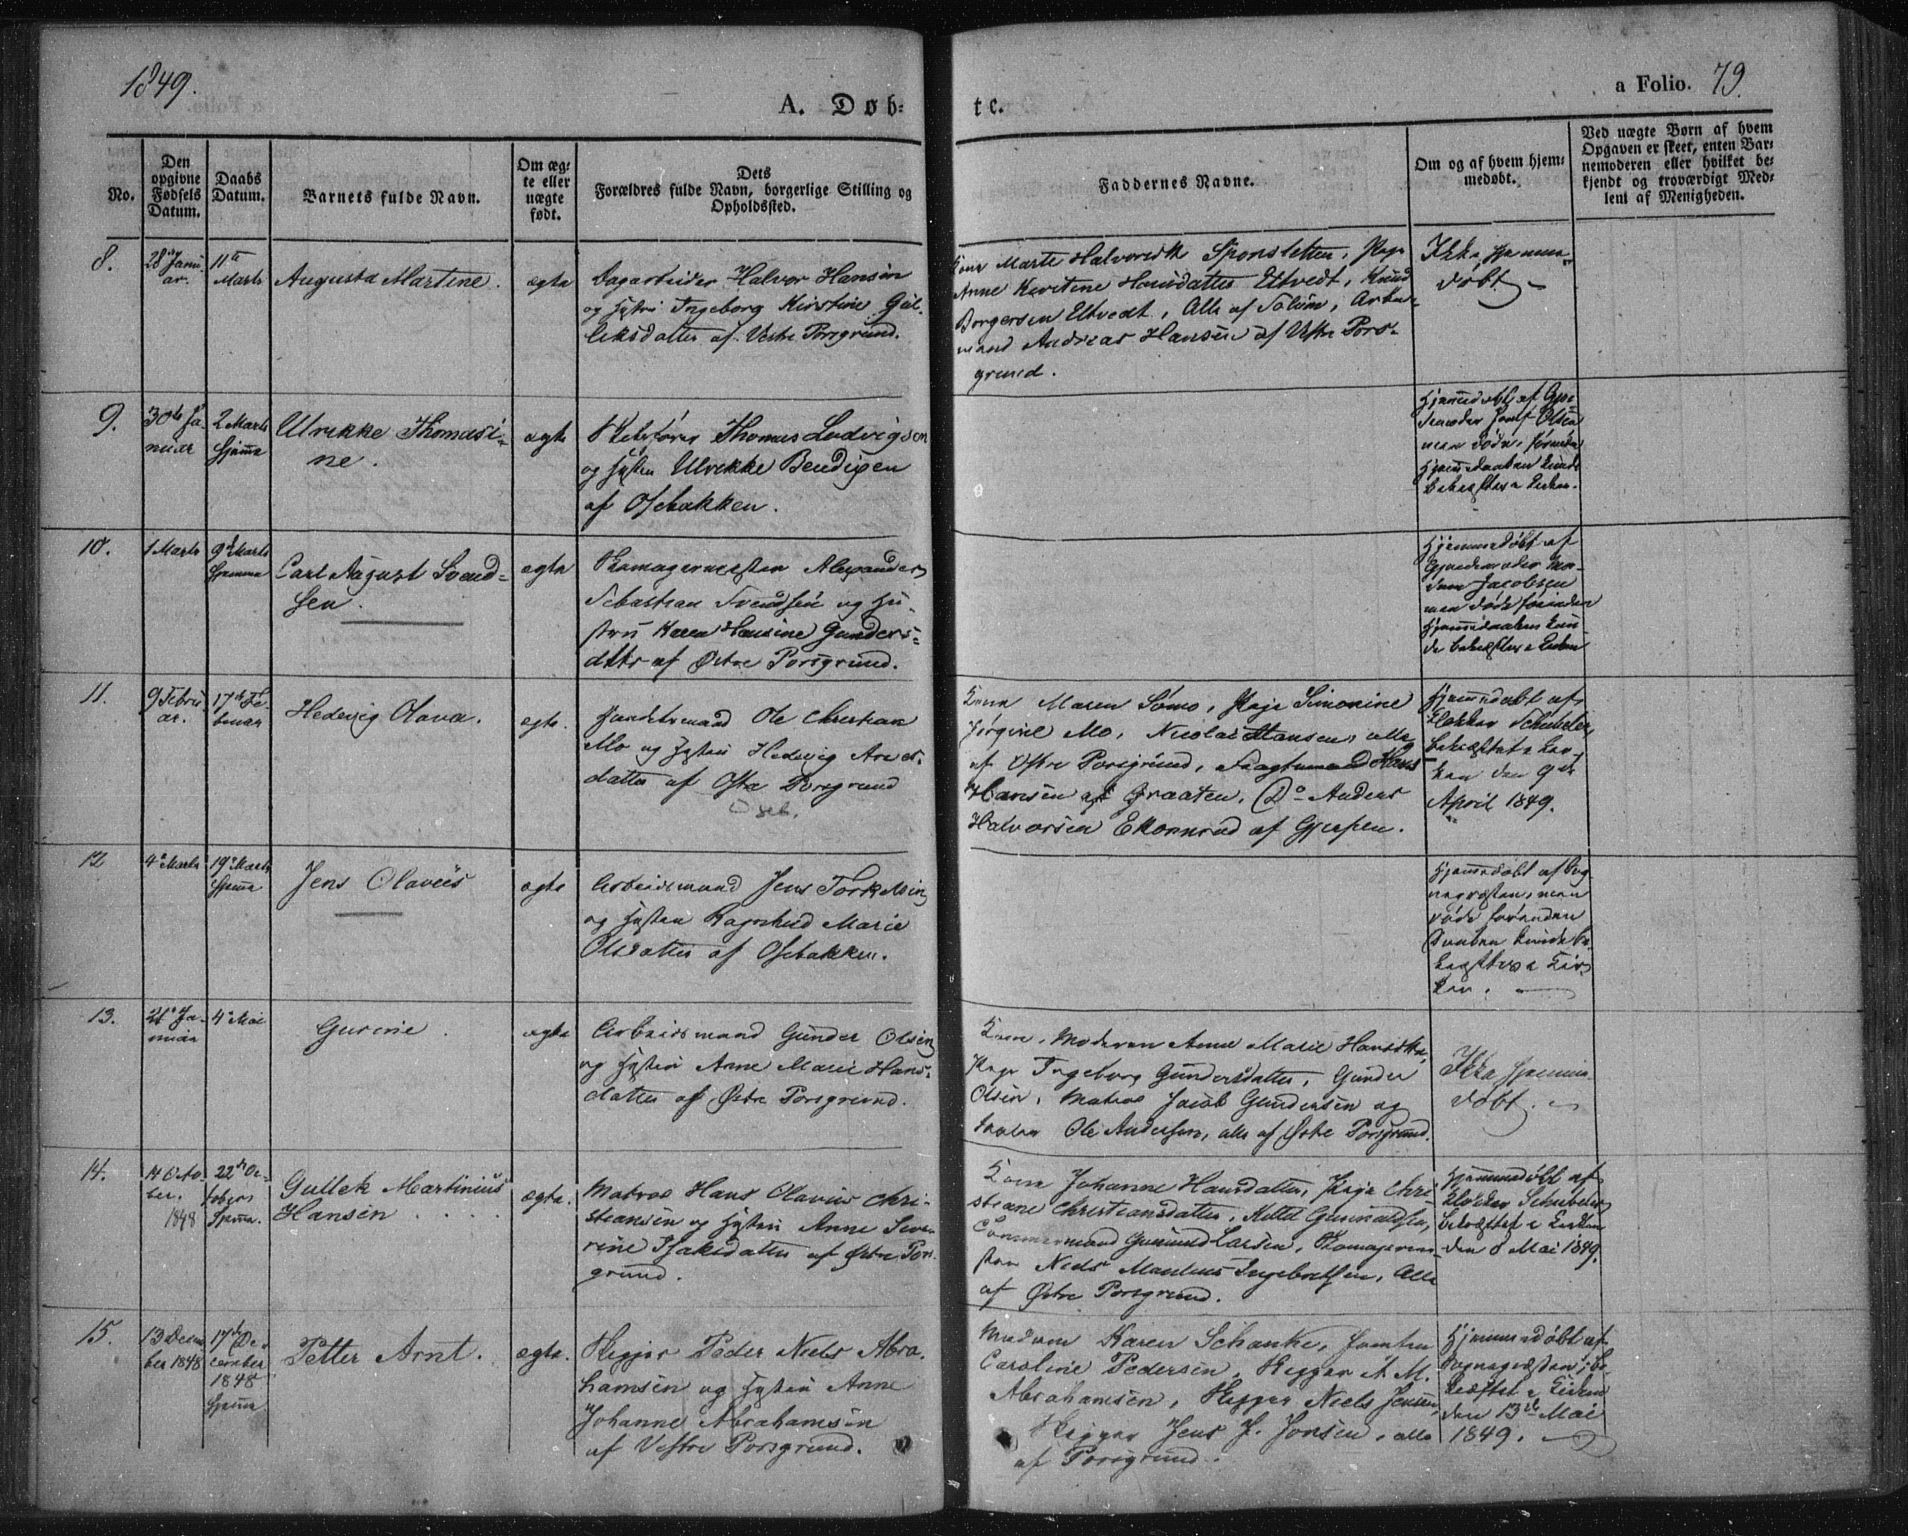 1849.
A. Døb-
te.
a Folio. 79.
No.
Den
opgivne
Fødsels
Datum.
Daabs
Datum.
Barnets fulde Navn.
Om æg-
te eller
uægte
født.
Dets
Forældres fulde Navn, borgerlige Stilling og
Opholdssted.
Faddernes Navne.
Om og af hvem hjem-
medøbt.
Ved uægte Børn af hvem
Opgaven er skeet, enten Bar-
nemoderen eller hvilket be-
kjendt og troværdigt Med-
lem af Menigheden.
8.
28 Janu-
ar.
11te
Marts
Augusta Martine.
ægte
Dagarbeider Halvor Hansen
og Hstr. Ingeborg Kirstine Gul-
leksdatter af Vestre Porsgrund.
Kone Marte Halvorsdtr Sponsletten, Pige
Anne Kirstine Hansdatter Eltvedt, Knud
Borgersen Eltvedt, Alle af Solum, Arbei-
mand Andreas Hansen af Vestre Pors-
grund.
Ikke hjemme-
døbt.
9.
30de Ja-
nuar
2 Marts
Hjemme
Ulrikke Thomasi-
ne.
ægte
Thomas Ludvigsen
og Hustru Ulrikke Bendixen
af Osebakken.
Hjemmedøbt af
Jomf. Olsen
men døde, førend
Hjemmedaaben kunde
bekræftes i Kirken.
10.
1 Marts
9de Marts
Hjemme
Carl August Svend-
sen.
ægte
Skomagermester Alexander
Sebastian Svendsen og Hu-
stru Karen Hansine Gunders-
dttr af Østre Porsgrund.
Hjemmedøbt af
Gjordemoder
Jacobsen
men døde førend
Hjemmedaaben kun-
de bekræftes i Kirken
11.
9 Febru-
ar.
17de Fe-
bruar
Hedevig Olava.
ægte.
Handelsmand Ole Christian
Mo og Hustru Hedevig Anders-
datter af Østre Porsgrund
Oseb.
Kone Maren Mo, Pige Simonine
Jørgine Mo, Nicolai Hansen, alle
af Østre Porsgrund, Hans
Hansen af Graaten, Do Anders
Halvorsen Ekornrud af Gjerpen.
Hjemmedøbt af
Klokker Schubeler,
bekræftet i Kir-
ken den 9de
April 1849.
12
4de Marts
19de Marts
Hjemme
Jens Olavus
ægte
Arbeidsmand Jens Torkelsen
og Hustru Ragnhild Marie
Olsdatter af Osebakken.
Hjemmedøbt af Sog-
nepræsten, men
døde førend
Daaben kunde be-
kræftes i Kir-
ken.
13.
21de Ja-
nuar
4de Mai
Gurine.
ægte
Arbeidsmand Gunder Olsen
og Hustru Anne Marie Hans-
datter af Østre Porsgrund.
Kone, Moderen Anne Marie Hansdtr,
Pige Ingeborg Gundersdatter, Gunder
Olsen, Matros Jacob Gundersen og
Ole Andersen, alle af Østre Porsgrund.
Ikke hjemme-
døbt.
14.
14 Octo-
ber.
1848
22de Oc-
tobers
Hjemme.
Gullek Martinius
Hansen
ægte.
Matros Hans Olavus Chri-
stiansen og Hustru Anne Seve-
rine Isaksdatter af Østre Pors-
grund.
Kone Johanne Hansdatter, Pige Chri-
stiane Christiansdatter, Kittel Gunnulfsen,
Tømmermand Gunnuld Larsen, Skomagerme-
ster Niels Ingebretsen, Alle
af Østre Porsgrund.
Hjemmedøbt af
Klokker Schubeler
bekræftet i Kirken
den 8 Mai 1849.
15.
13 Decem-
ber 1848
17de De-
cember
1848
Hjemme
Petter Arnt.
ægte.
Skipper Peder Niels Abra-
hamsen og Hustru Anne
Johanne Abrahamsen
af Vestre Porsgrund.
Madam Karen Schanke, Jomfru
Caroline Pedersen, Skipper A. M.
Abrahamsen, Skipper Niels Jensen,
Skipper Jens P. Jonsen, alle
af Porsgrund.
Hjemmedøbt af
Sognepræsten, be-
kræftet i Kirken
den 13de Mai
1849.